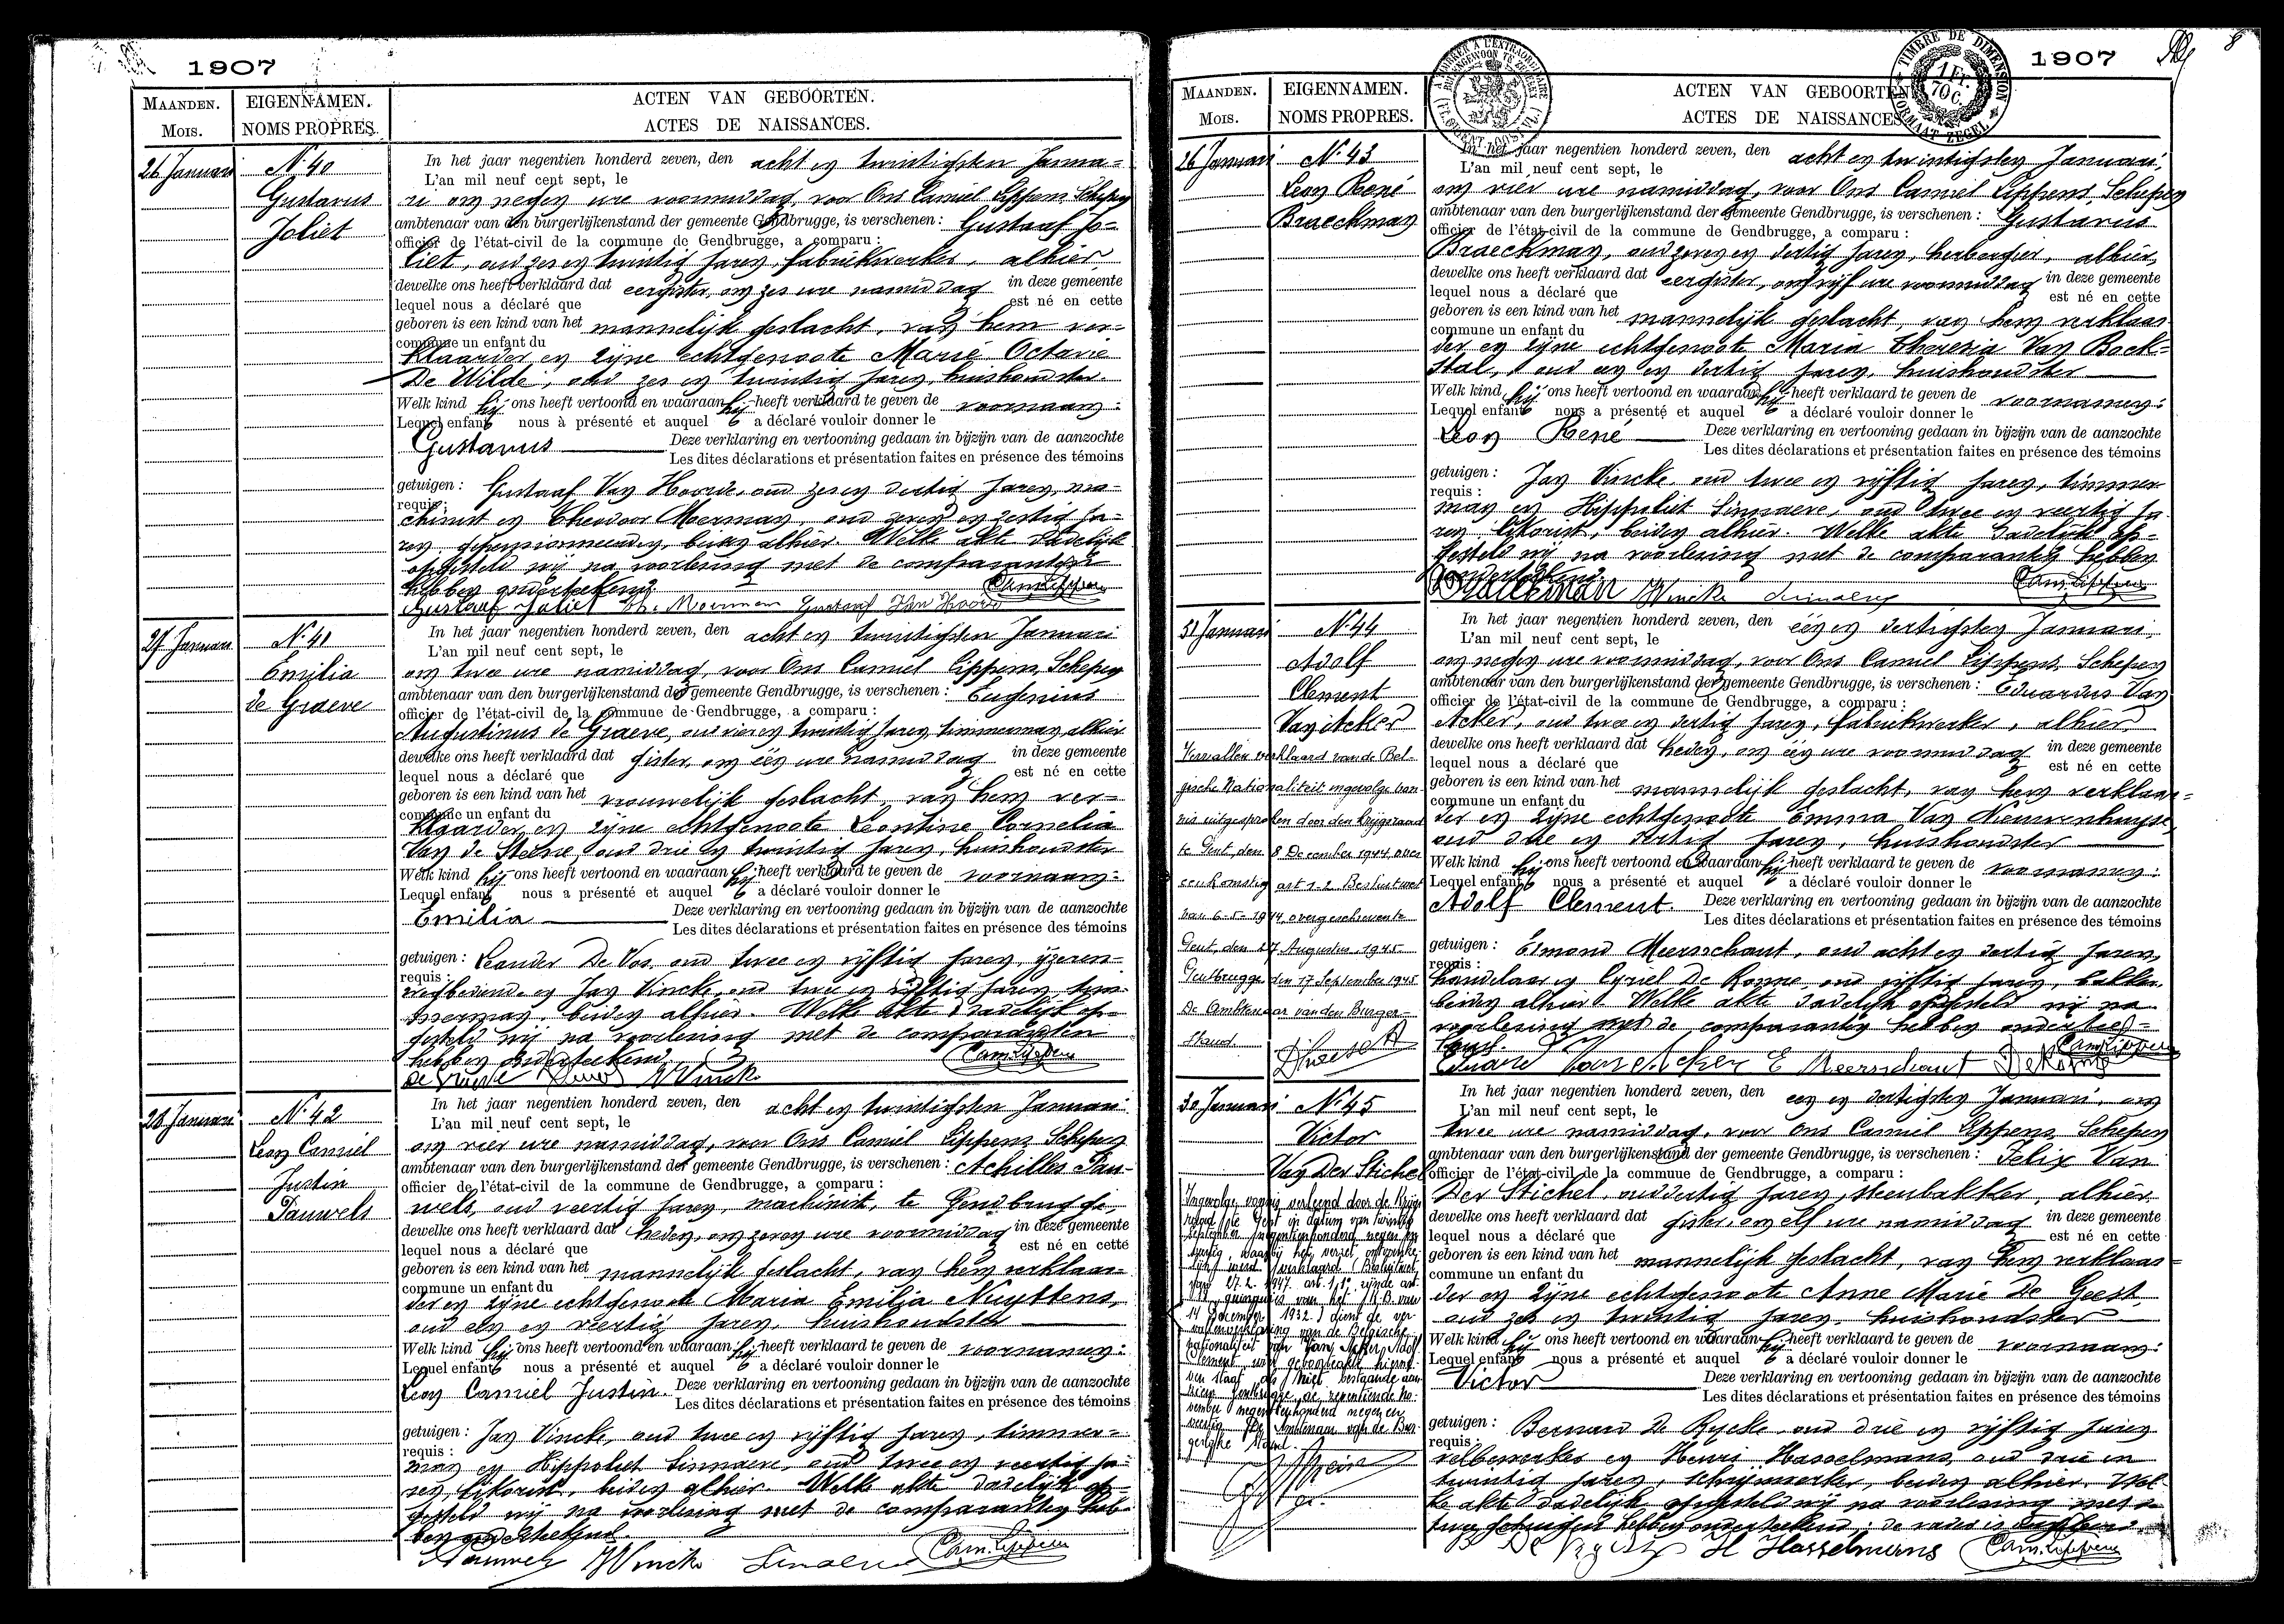 1907
MAANDEN.
Mois.
EIGENNAMEN.
NOMS PROPRES.
ACTEN VAN GEBOORTEN.
ACTES DE NAISSANCES.
26 Januari
No 40
Gustavus
Joliet
In het jaar negentien honderd zeven, den acht en twintigsten Janua=
L'an mil neuf cent sept, le
ri om negen ure voormiddag, voor Ons Camiel Lippens, Schepen
ambtenaar van den burgerlijkenstand der gemeente Gendbrugge, is verschenen : Gustaaf Jo=
officier de l'état-civil de la commune de Gendbrugge, a comparu :
liet, oud zes en twintig jaren, fabriekwerker, alhier,
dewelke ons heeft verklaard dat eergister, om zes ure namiddag in deze gemeente
lequel nous a déclaré que est né en cette
geboren is een kind van het mannelijk geslacht, van hem ver=
commune un enfant du
klaarder en zijne echtgenoote Marie Octavie
De Wilde, oud zes en twintig jaren, huishoudster.
Welk kind hij ons heeft vertoond en waaraan hij heeft verklaard te geven de voornaam:
Lequel enfant nous à présenté et auquel a déclaré vouloir donner le
Gustavus Deze verklaring en vertooning gedaan in bijzijn van de aanzochte
Les dites déclarations et présentation faites en présence des témoins
getuigen : Gustaaf Van Hoorde, oud zes en dertig jaren, ma=
requis :
chinist en Theodoor Moerman, oud zeven en zestig ja=
ren, gepensionneerden, beiden alhier. Welke akte dadelijk
opgesteld wij na voorlezing met de comparanten
hebben onderteekend.
Cam. Lippens
Gustaaf Joliet Th. Moerman Gustaaf Van Hoorde
27 Januari
No 41
Emilia
de Graeve
In het jaar negentien honderd zeven, den acht en twintigsten Januari
L'an mil neuf cent sept, le
om twee ure namiddag, voor Ons Camiel Lippens, Schepen
ambtenaar van den burgerlijkenstand der gemeente Gendbrugge, is verschenen : Eugenius
officier de l'état-civil de la commune de Gendbrugge, a comparu :
Augustinus de Graeve, oud vier en twintig jaren, timmerman, alhier
dewelke ons heeft verklaard dat gister, om één ure namiddag in deze gemeente
lequel nous a déclaré que est né en cette
geboren is een kind van het vrouwelijk geslacht, van hem ver=
commune un enfant du
klaarder en zijne echtgenoote Leontine Cornelia
Van de Steene, oud drie en twintig jaren, huishoudster
Welk kind hij ons heeft vertoond en waaraan hij heeft verklaard te geven de voornaam:
Lequel enfant nous a présenté et auquel a déclaré vouloir donner le
Emilia Deze verklaring en vertooning gedaan in bijzijn van de aanzochte
Les dites déclarations et présentation faites en présence des témoins
getuigen : Leander De Vos, oud twee en vijftig jaren, ijzeren=
requis :
wegbediende en Jan Vincke, oud twee en vijftig jaren, tim=
merman, beiden alhier. Welke akte dadelijk op=
gesteld wij na voorlezing met de comparanten
hebben onderteekend.
Cam. Lippens
J Vincke
28 Januari
No 42
Leon Camiel
Justin
Pauwels
In het jaar negentien honderd zeven, den acht en twintigsten Januari
L'an mil neuf cent sept, le
om vier ure namiddag, voor Ons Camiel Lippens, Schepen
ambtenaar van den burgerlijkenstand der gemeente Gendbrugge, is verschenen : Achilles Pau=
officier de l'état-civil de la commune de Gendbrugge, a comparu :
wels, oud veertig jaren, machinist, te Gendbrugge,
dewelke ons heeft verklaard dat heden, om zeven ure voormiddag in deze gemeente
lequel nous a déclaré que est né en cette
geboren is een kind van het mannelijk geslacht, van hem verklaar=
commune un enfant du
der en zijne echtgenoote Maria Emilia Nuyttens,
oud een en veertig jaren, huishoudster
Welk kind hij ons heeft vertoond en waaraan hij heeft verklaard te geven de voornamen:
Lequel enfant nous a présenté et auquel a déclaré vouloir donner le
Leon Camiel Justin. Deze verklaring en vertooning gedaan in bijzijn van de aanzochte
Les dites déclarations et présentation faites en présence des témoins
getuigen : Jan Vincke, oud twee en vijftig jaren, timmer=
requis :
man en Hippoliet Sinnaeve, oud twee en veertig ja=
ren, likorist, beiden alhier. Welke akte dadelijk op=
gesteld wij na voorlezing met de comparanten heb=
ben onderteekend.
Pauwels J Vincke Sinnaeve Cam. Lippens
1907
8
TIMBRE DE DIMENSION
1 FR. 70 C.
FORMAAT ZEGEL
MAANDEN.
Mois.
EIGENNAMEN.
NOMS PROPRES.
ACTEN VAN GEBOORTEN
ACTES DE NAISSANCES
26 Januari
No 43
Leon René
Braeckman
In het jaar negentien honderd zeven, den acht en twintigsten Januari,
L'an mil neuf cent sept, le
om vier ure namiddag, voor Ons Camiel Lippens, Schepen
ambtenaar van den burgerlijkenstand der gemeente Gendbrugge, is verschenen : Gustavus
officier de l'état-civil de la commune de Gendbrugge, a comparu :
Braeckman, oud zeven en dertig jaren, herbergier, alhier,
dewelke ons heeft verklaard dat eergister, om vijf ure voormiddag in deze gemeente
lequel nous a déclaré que est né en cette
geboren is een kind van het mannelijk geslacht, van hem verklaar
commune un enfant du
der en zijne echtgenoote Maria Theresia Van Bock=
stal, oud een en dertig jaren, huishoudster
Welk kind hij ons heeft vertoond en waaraan hij heeft verklaard te geven de voornamen:
Lequel enfant nous a présenté et auquel a déclaré vouloir donner le
Leon René Deze verklaring en vertooning gedaan in bijzijn van de aanzochte
Les dites déclarations et présentation faites en présence des témoins
getuigen : Jan Vincke, oud twee en vijftig jaren, timmer
requis :
man en Hippoliet Sinnaeve, oud twee en veertig ja
ren, likorist, beiden alhier. Welke akte dadelijk op=
gesteld wij na voorlezing met de comparanten hebben
onderteekend.
Cam. Lippens
Braeckman J Vincke Sinnaeve
31 Januari
No 44
Adolf
Clement
Van Acker
Vervallen verklaard van de Bel-
gische Nationaliteit ingevolge von-
nis uitgesproken door den Krijgsraad
te Gent, den 8 December 1944, over
eenkomstig art 1.2 Besluitwet
van 6-5-1944, overgeschreven te
Gent, den 27 Augustus 1945
Gentbrugge, den 17 September 1945
De Ambtenaar van den Burger-
Stand.
In het jaar negentien honderd zeven, den één en dertigsten Januari,
L'an mil neuf cent sept, le
om negen ure voormiddag, voor Ons Camiel Lippens, Schepen
ambtenaar van den burgerlijkenstand der gemeente Gendbrugge, is verschenen : Eduardus Van
officier de l'état-civil de la commune de Gendbrugge, a comparu :
Acker, oud twee en dertig jaren, fabriekwerker, alhier,
dewelke ons heeft verklaard dat heden, om één ure voormiddag in deze gemeente
lequel nous a déclaré que est né en cette
geboren is een kind van het mannelijk geslacht, van hem verklaar=
commune un enfant du
der en zijne echtgenoote Emma Van Nieuwenhuyse,
oud drie en dertig jaren, huishoudster
Welk kind hij ons heeft vertoond en waaraan hij heeft verklaard te geven de voornamen:
Lequel enfant nous a présenté et auquel a déclaré vouloir donner le
Adolf Clement. Deze verklaring en vertooning gedaan in bijzijn van de aanzochte
Les dites déclarations et présentation faites en présence des témoins
getuigen : Edmond Meersschaut, oud acht en dertig jaren,
requis :
handelaar en Cyriel De Ronne, oud vijftig jaren, bakker,
beiden alhier. Welke akte dadelijk opgesteld wij na
voorlezing met de comparanten hebben onderteek=
kend.
Cam. Lippens
Eduard Van Acker E Meersschaut
30 Januari
No 45
Victor
Van Der Stichel
Ingevolge vonnis verleend door de Krijgs
raad te Gent in datum van twintig
September negentienhonderd negen en
veertig, waarbij het verzet ontvanke-
lijk werd verklaard (Besluitwet
van 27.2.1947. art. 1,1° zijnde art.
123 quinquies van het K.B. van
14 December 1932.) dient de ver
vallenverklaring van de Belgische
nationaliteit van Van Acker Adolf
Clement
In het jaar negentien honderd zeven, den een en dertigsten Januari, om
L'an mil neuf cent sept, le
twee ure namiddag, voor Ons Camiel Lippens, Schepen
ambtenaar van den burgerlijkenstand der gemeente Gendbrugge, is verschenen : Felix Van
officier de l'état-civil de la commune de Gendbrugge, a comparu :
Der Stichel, oud dertig jaren, steenbakker, alhier,
dewelke ons heeft verklaard dat gister, om elf ure namiddag in deze gemeente
lequel nous a déclaré que est né en cette
geboren is een kind van het mannelijk geslacht, van hem verklaar=
commune un enfant du
der en zijne echtgenoote Anne Marie De Geest,
oud zes en twintig jaren, huishoudster
Welk kind hij ons heeft vertoond en waaraan hij heeft verklaard te geven de voornaam:
Lequel enfant nous a présenté et auquel a déclaré vouloir donner le
Victor Deze verklaring en vertooning gedaan in bijzijn van de aanzochte
Les dites déclarations et présentation faites en présence des témoins
getuigen : Bernard De Rycke, oud drie en vijftig jaren
requis :
en Henri Hasselmans, oud drie en
twintig jaren, schrijnwerker, beiden alhier. Wel
ke akte dadelijk opgesteld wij na voorlezing met
hebben onderteekend; de vader is
H Hasselmans Cam. Lippens